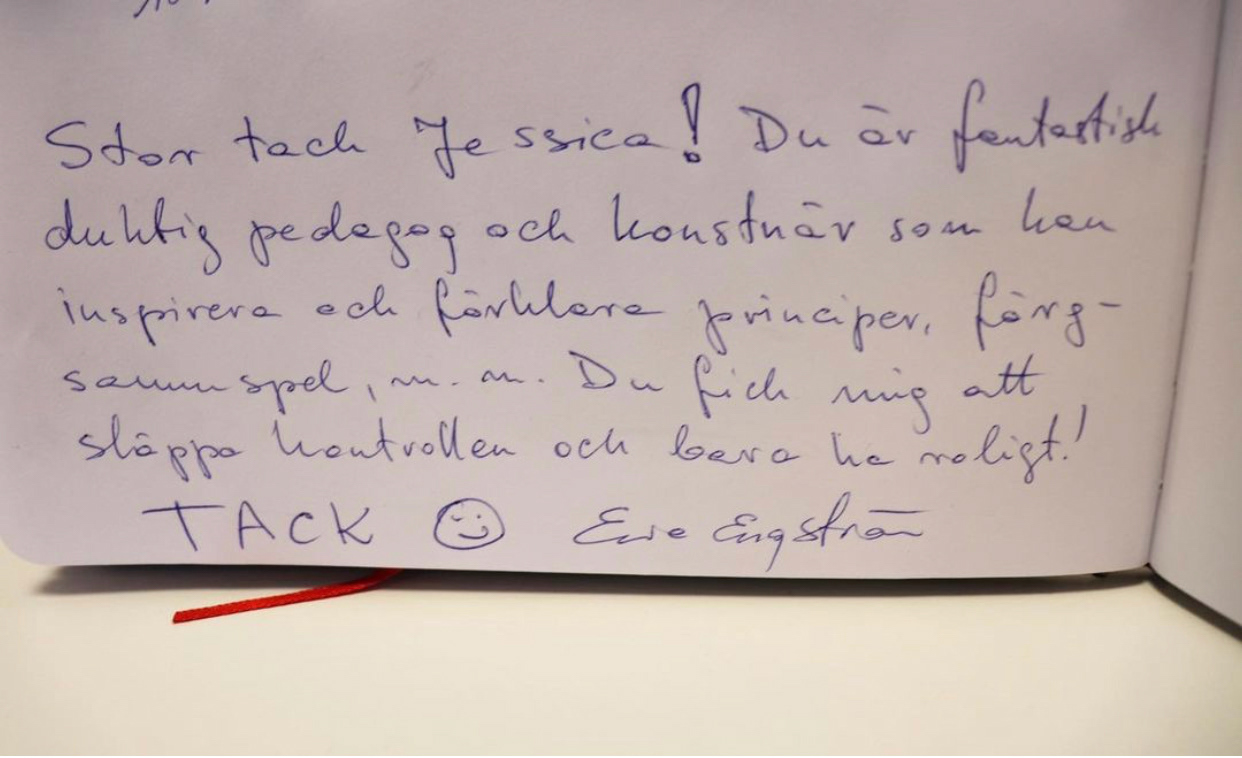 Stor tack Jessica! Du är fantastisk
duktig pedagog och konstnär som kan
inspirera och förklara principer, färg-
samspel, m.m. Du fick mig att
släppa kontrollen och bara ha roligt!
TACK Ewa Engström